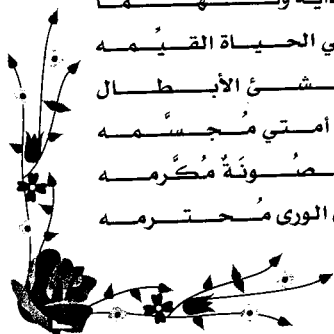 ي الحياة القيِّمه
شئ الأبطال
أمتي مُجسَّمه
صونَةٌ مُكرَّمه
الورى مُحترمه